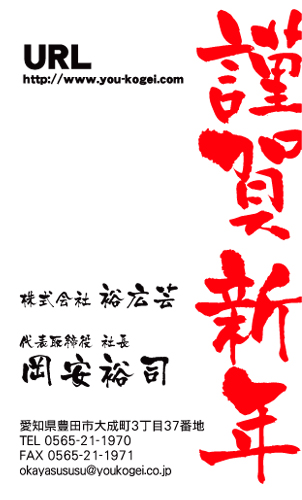 謹賀新年
URL
http://www.you-kogei.com
株式会社 裕広芸
代表取締役 社長
岡安裕司
愛知県豊田市大成町3丁目37番地
TEL 0565-21-1970
FAX 0565-21-1971
okayasususu@youkogei.co.jp